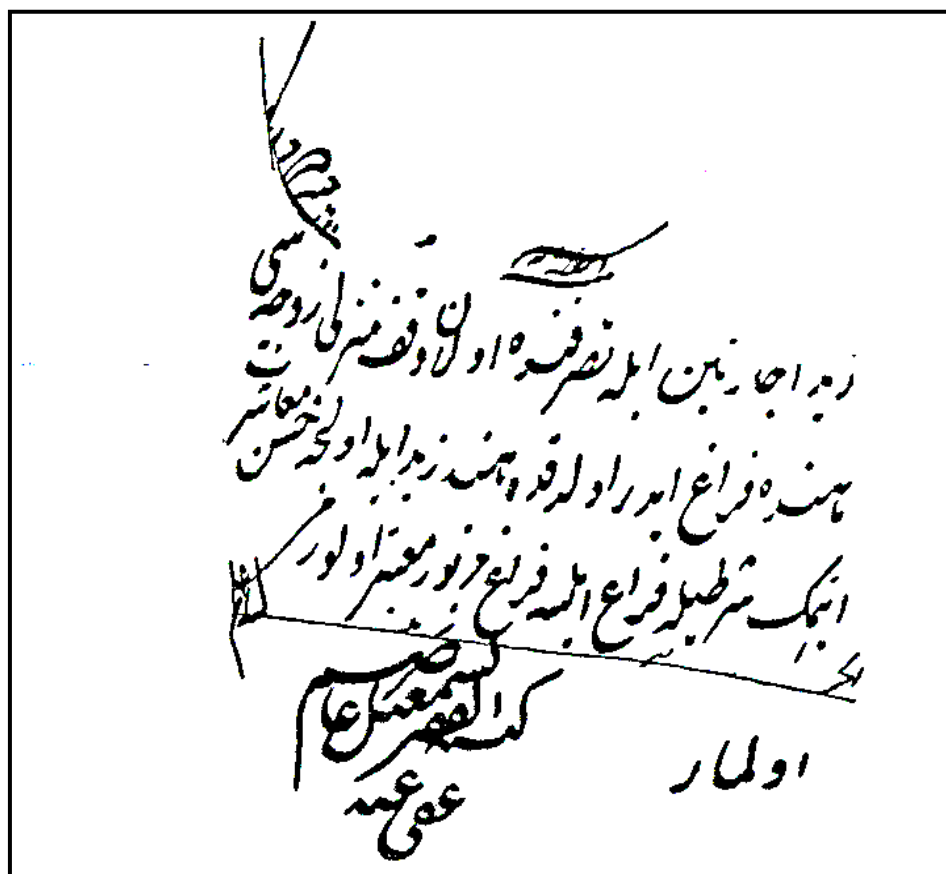 زيد اجارتين ايله تصرفنده اولان وقف منزلى زوجه سى
هنده فراغ ايدر اولدقده هند زيد ايله اولنجه حسن معاشرت
ايتمك شرطيله فراغ ايلسه فراغ مزبور معتبر اولور
اولماز
كتبه الفقير
اسمعيل عاصم
عفى عنه